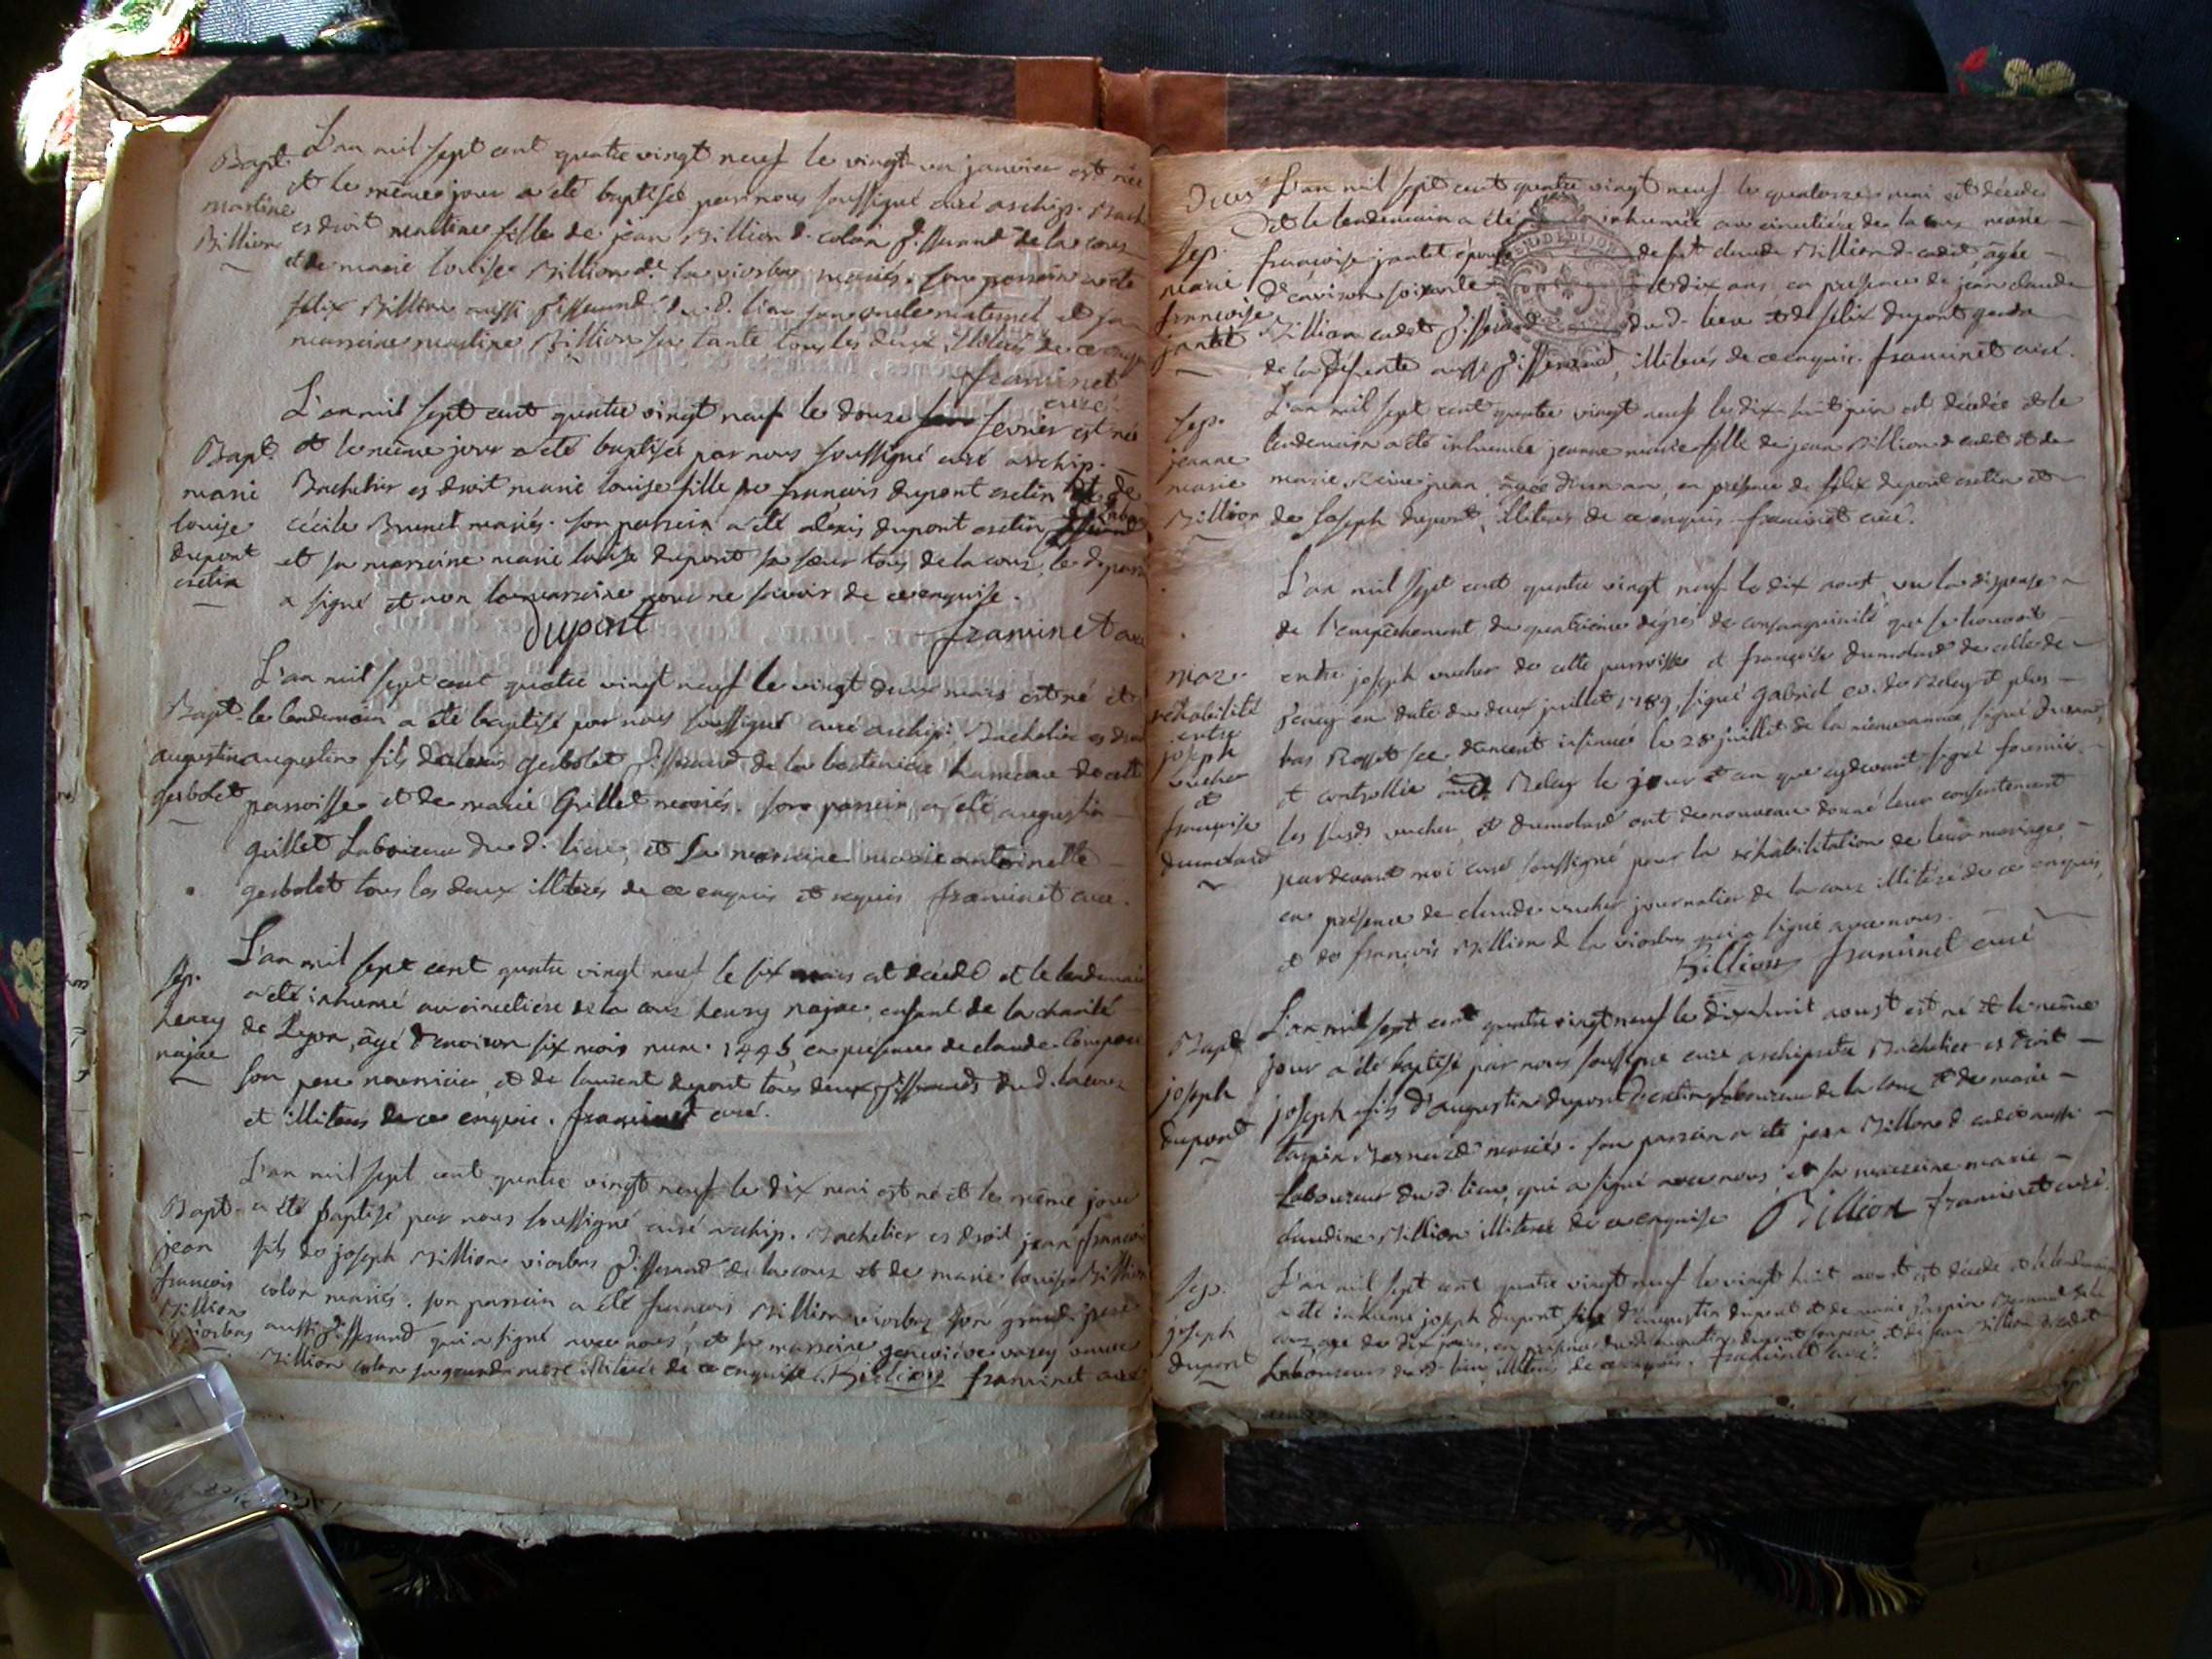 Bapt.
martine
Billion
L'an mil sept cent quatre vingt neuf le vingt un janvier est née
et le même jour a été baptisée par nous soussigné curé archip. Bach
es droit martine fille de jean Billion d. colon Tisserand de la coux
et de marie louise Billion de la viorbas mariés. son parrain a été
felix Billion aussi Tisserand du d. lieu son oncle maternel et sa
marraine martine Billion sa tante tous les deux illiterés de ce enquis
framinet
curé
Bapt.
marie
louise
dupont
esetin
L'an mil sept cent quatre vingt neuf le douze fevrier est née
et le même jour a été baptisée par nous soussigné curé archip.
Bachelier es droit marie louise fille de francois dupont esetin et de
cécile Brunet mariés. son parrain a été alexis dupont esetin
et sa marraine marie louise dupont sa sœur tous de la coux, le d. parrain
a signé et non la marraine pour ne savoir de ce enquise.
dupont framinet curé
Bapt.
augustin
gesbolet
L'an mil sept cent quatre vingt neuf le vingt deux mars est né et
le lendemain a été baptisé par nous soussigné curé archip. Bachelier es droit
augustin fils d'alexis gesbolet Tisserand de la hameau de cette
parroisse et de marie Grillet mariés. son parrain a été augustin
grillet Laboureur du d. lieu, et sa marraine marie antoinette
gesbolet tous les deux illiterés de ce enquis et requis framinet curé.
Sep.
henry
najac
L'an mil sept cent quatre vingt neuf le six mars est décédé et le lendemain
a été inhumé au cimetiere de la coux henry najac, enfant de la charité
de Lyon, âgé d'environ six mois num. 1445 en presence de claude
son pere nourricier et de laurent dupont tous deux Tisserands du d. la coux
et illiterés de ce enquis. framinet curé.
Bapt.
jean
françois
Billion
viorbas
L'an mil sept cent quatre vingt neuf le dix mai est né et le même jour
a été baptisé par nous soussigné curé archip. Bachelier es droit jean francois
fils de joseph Billion viorbas Tisserand de la coux et de marie louise Billion
colon mariés. son parrain a été francois Billion viorbas son grand pere
aussi Tisserand qui a signé avec nous, et sa marraine geneviève veuve
Billion colon sa grand mere illiterée de ce enquise. Billion framinet curé
Sep.
marie
françoise
jantet
L'an mil sept cent quatre vingt neuf le quatorze mai est décédée
et le lendemain a été inhumée au cimetiere de la coux marie
françoise jantet épouse de fut claude Billion d. cadet, âgée
d'environ soixante et dix ans, en présence de jean claude
Billion cadet Tisserand du d. lieu et de felix dupont gendre
de la défunte aussi Tisserand, illiterés de ce enquis. framinet curé.
GEN. DE DIJON
Sep.
jeanne
marie
Billion
L'an mil sept cent quatre vingt neuf le dix huit juin est décédée et le
lendemain a été inhumée jeanne marie fille de jean Billion d. cadet et de
marie Reine jean, âgée d'un an, en présence de felix dupont esetin et
de joseph dupont, illiterés de ce enquis. framinet curé.
mar.
réhabilité
entre
joseph
vucher
et
françoise
dumolard
L'an mil sept cent quatre vingt neuf le dix aoust, vu la dispense
de l'empêchement du quatrieme dégré de consanguinité qui se trouvoit
entre joseph vucher de cette parroisse et françoise dumolard de celle de
en date du deux juillet 1789, signé gabriel ev. de Beley et plus
bas Rosset duement insinué le 28 juillet de la même année, signé
et controllée aud. Beley le jour et an que cydevant signé fournier
les susds. vucher, et dumolard ont de nouveau donné leur consentement
pardevant moi curé soussigné pour la réhabilitation de leur mariage,
en présence de claude vucher journalier de la coux illiteré de ce enquis,
et de françois Billion d. la viorbas qui a signé avec nous.
Billion framinet curé
Bapt.
joseph
dupont
L'an mil sept cent quatre vingt neuf le dix huit aoust est né et le même
jour a été baptisé par nous soussigné curé archiprêtre Bachelier es droit
joseph fils d'augustin dupont d. esetin Laboureur de la coux et de marie
Bernard mariés. son parrain a été jean Billion d. cadet aussi
Laboureur du d. lieu, qui a signé avec nous, et sa marraine marie
claudine Billion illiterée de ce enquise Billion framinet curé.
Sep.
joseph
dupont
L'an mil sept cent quatre vingt neuf le vingt huit aoust est décédé et le lendemain
a été inhumé joseph dupont fils d'augustin dupont et de marie Bernard de la
coux age de dix jours, en presence du d. augustin dupont son pere, et de jean Billion d. cadet
Laboureurs du d. lieu, illiterés de ce enquis. framinet curé.